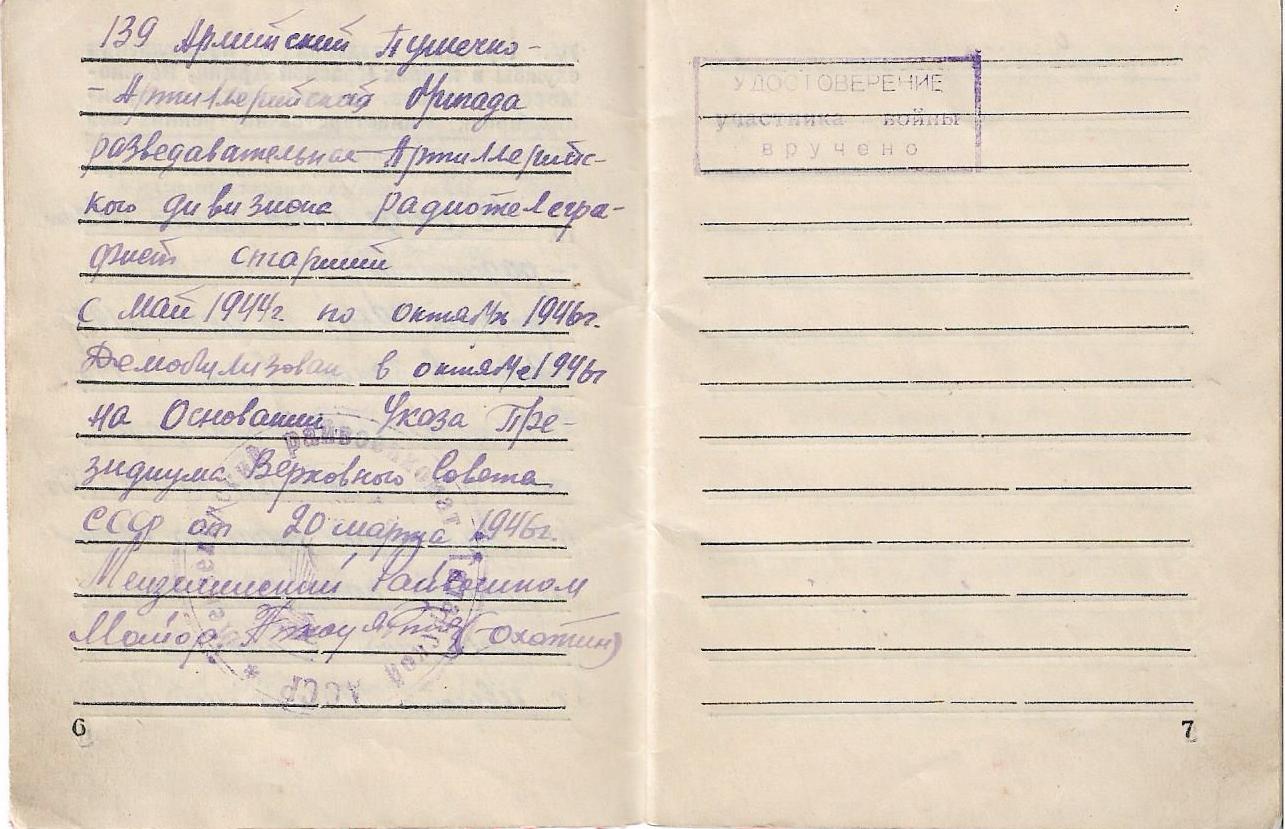 139 Армийский Пушечно-
- Артиллерийской бригада
разведавательная Артиллерийс-
кого дивизиона радиотелегра-
фист старший
с май 1944г. по октябрь 1946г.
Демобилизован в октябре 1946г
на Основании Указа Пре-
зидиума Верховного Совета
СССР от 20 марта 1946г.
Мензелинский Райвоенком
Майор (Охотин)
райвоенкомат
АССР
6
УДОСТОВЕРЕНИЕ
участника войны
вручено
7